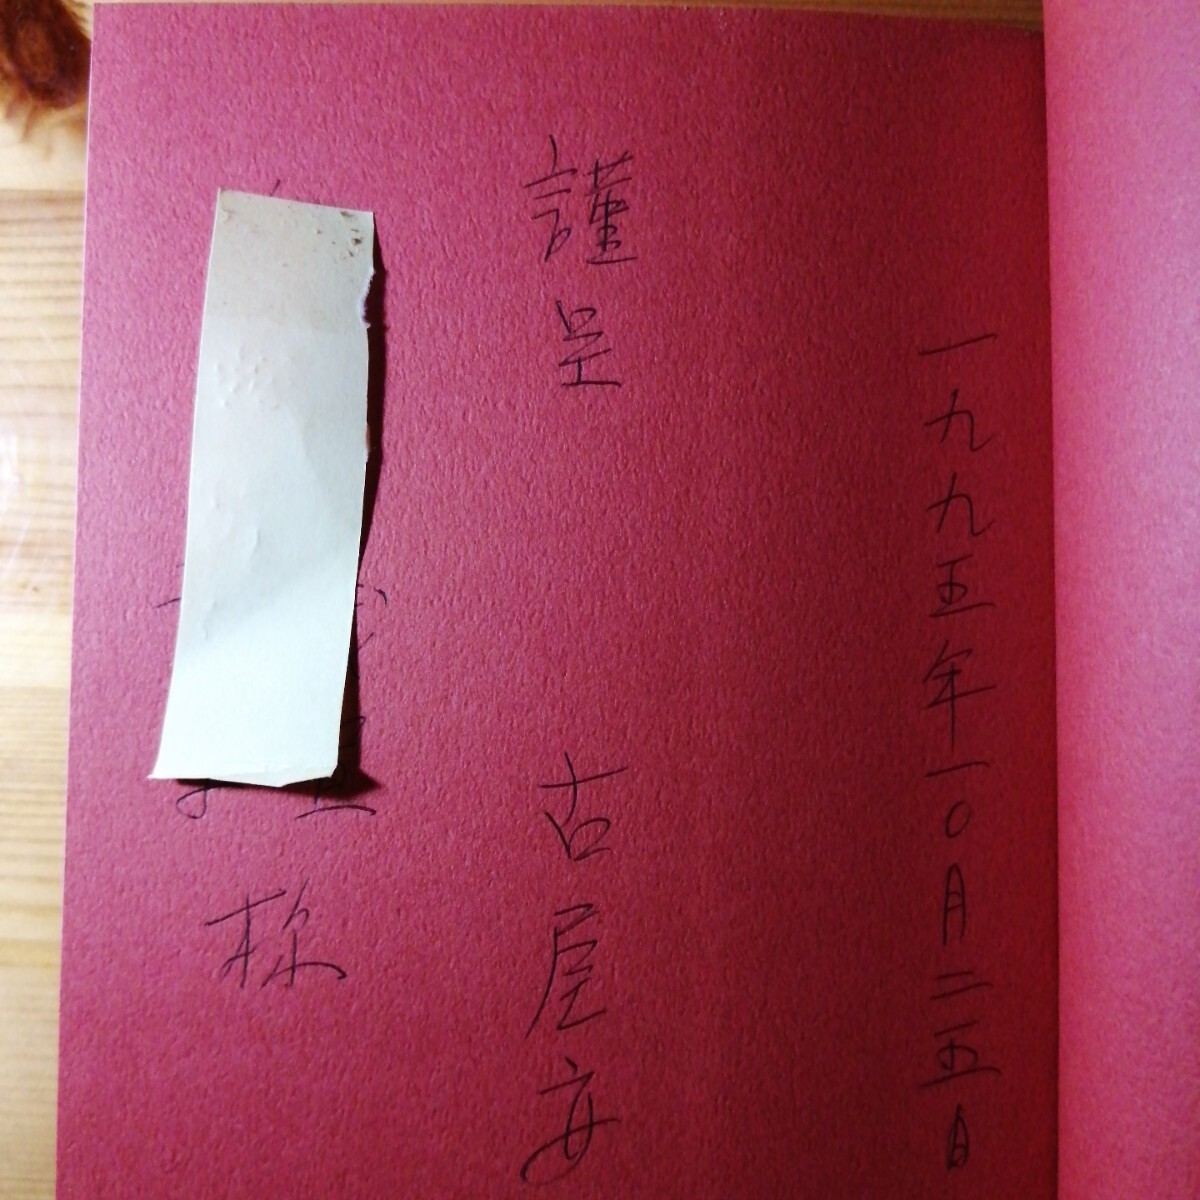 一九九五年一〇月二五日
謹呈 古屋安
様